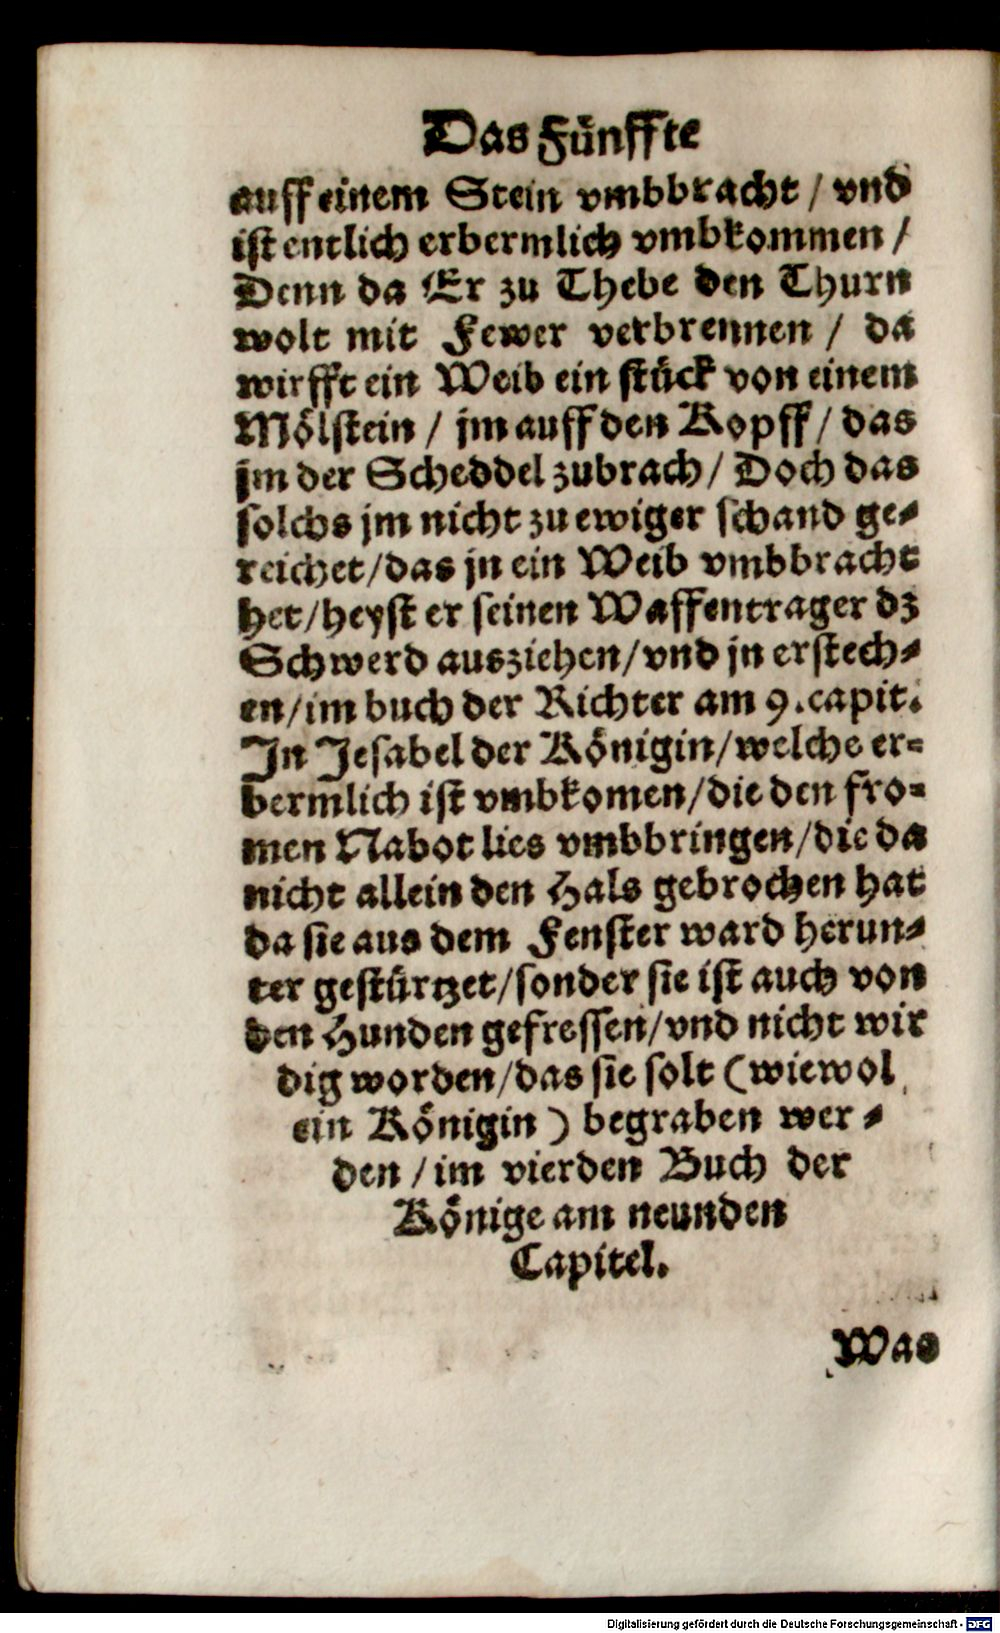 Das Fünffte
auff einem Stein vmbbracht / vnd
ist entlich erbermlich vmbkommen /
Denn da Er zu Thebe den Thurn
wolt mit Fewer verbrennen / da
wirfft ein Weib ein stück von einem
Mölstein / jm auff den Kopff / das
jm der Scheddel zubrach / Doch das
solchs jm nicht zu ewiger schand ge⸗
reichet / das jn ein Weib vmbbracht
het / heyst er seinen Waffentrager dz
Schwerd ausziehen / vnd jn erstech⸗
en / im buch der Richter am 9. capit.
In Jesabel der Königin / welche er⸗
bermlich ist vmbkomen / die den fro⸗
men Nabot lies vmbbringen / die da
nicht allein den Hals gebrochen hat
da sie aus dem Fenster ward herun⸗
ter gestürtzet / sonder sie ist auch von
den Hunden gefressen / vnd nicht wir
dig worden / das sie solt (wiewol
ein Königin) begraben wer⸗
den / im vierden Buch der
Könige am neunden
Capitel.
Was
Digitalisierung gefördert durch die Deutsche Forschungsgemeinschaft - DFG